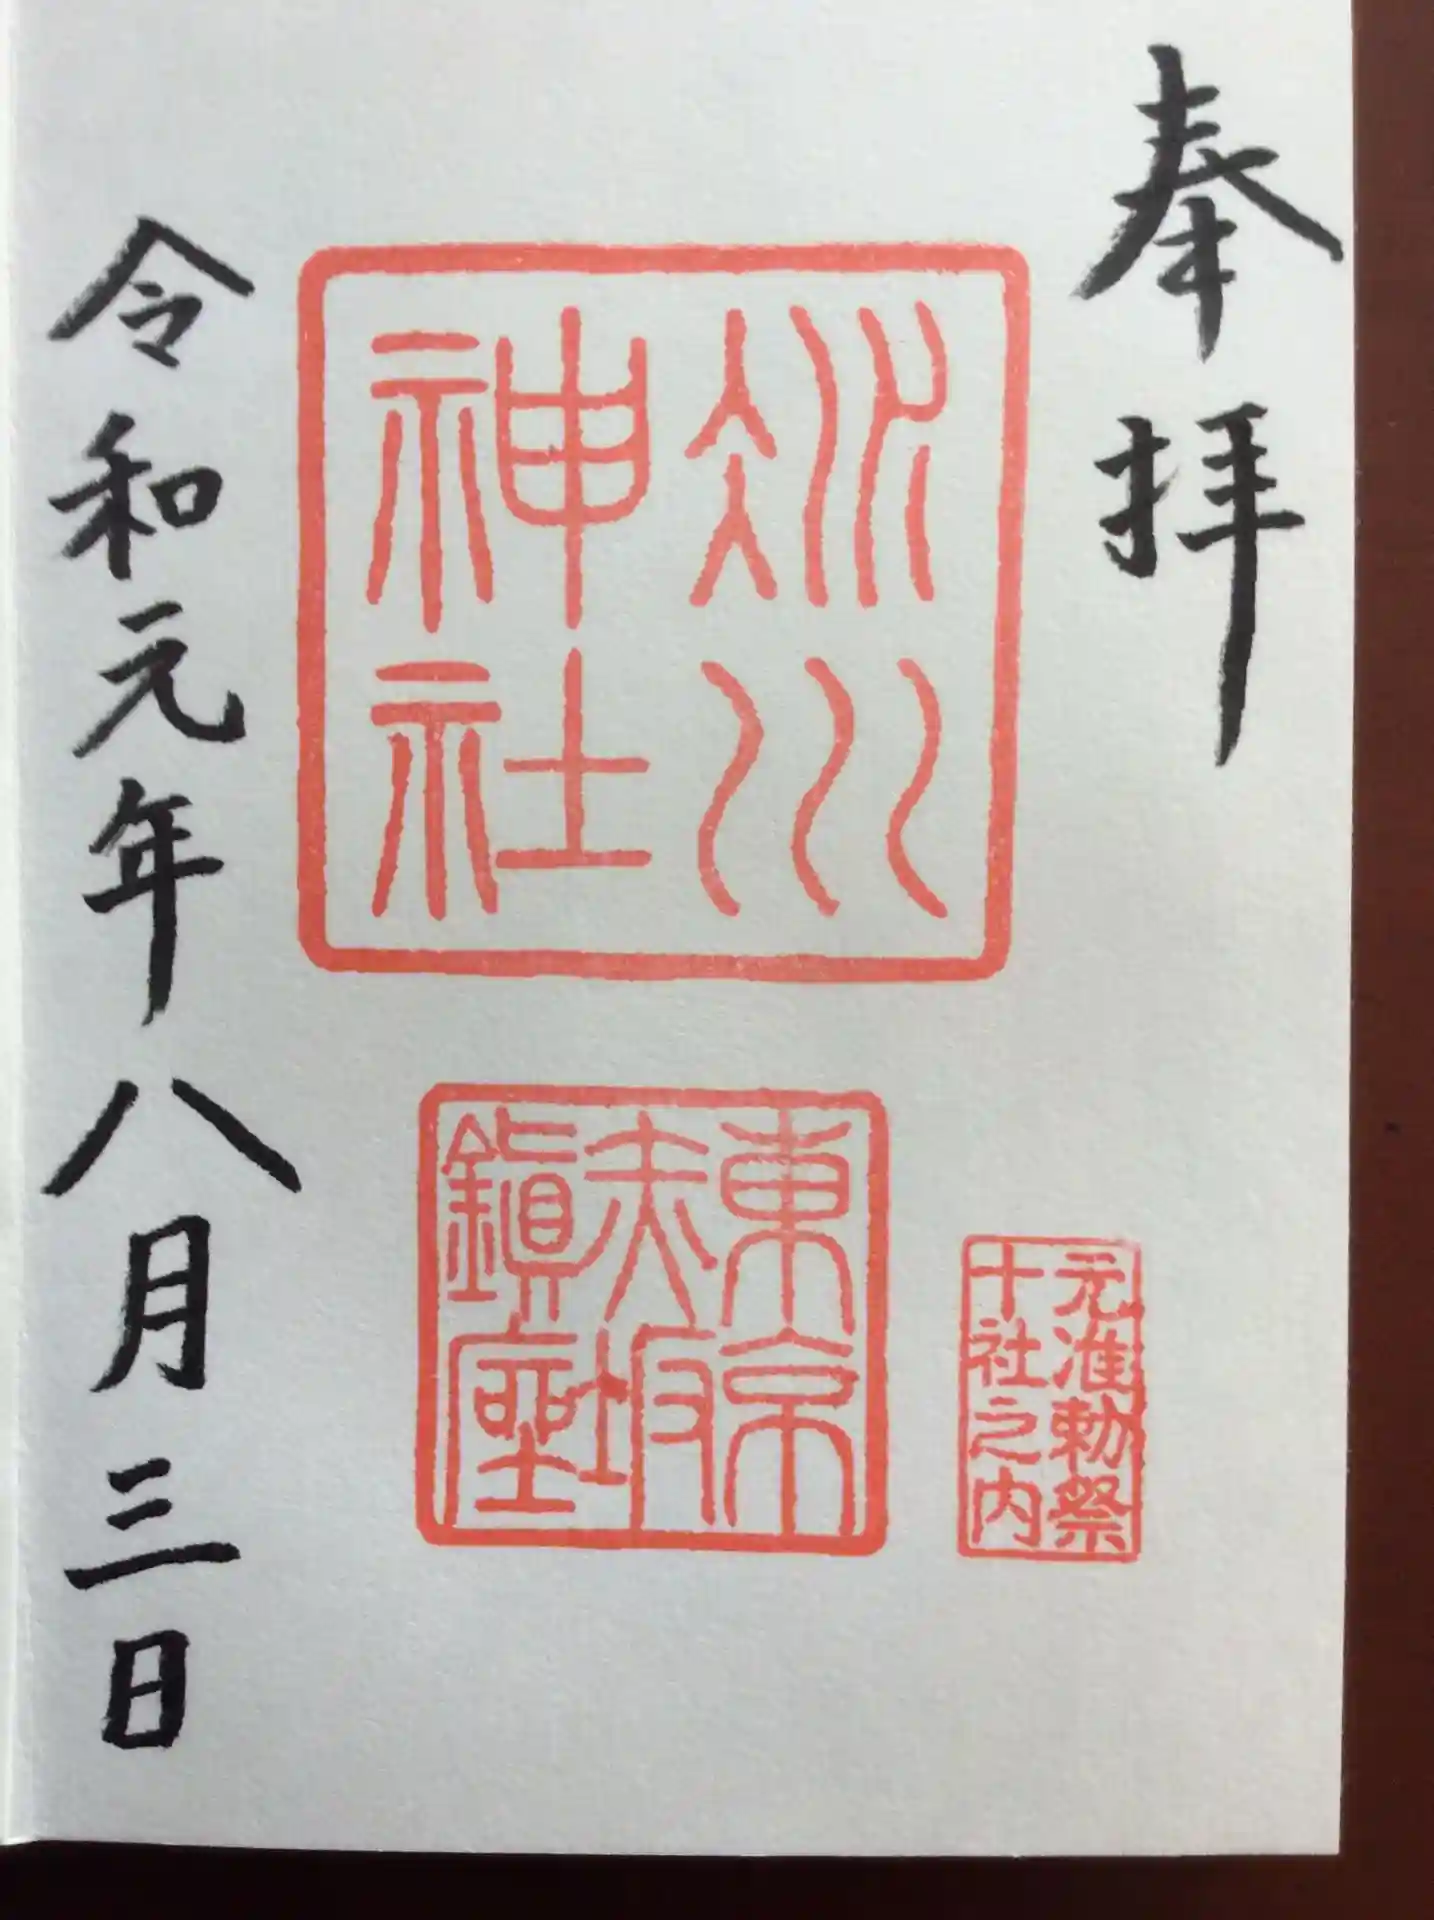 奉拝
冰川
神社
東京
赤坂
鎭座
元准勅祭
十社之内
令和元年八月三日